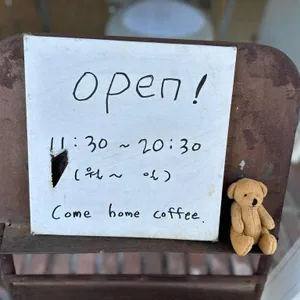 open!
11:30 ~ 20:30
(월~ 일)
Come home coffee.